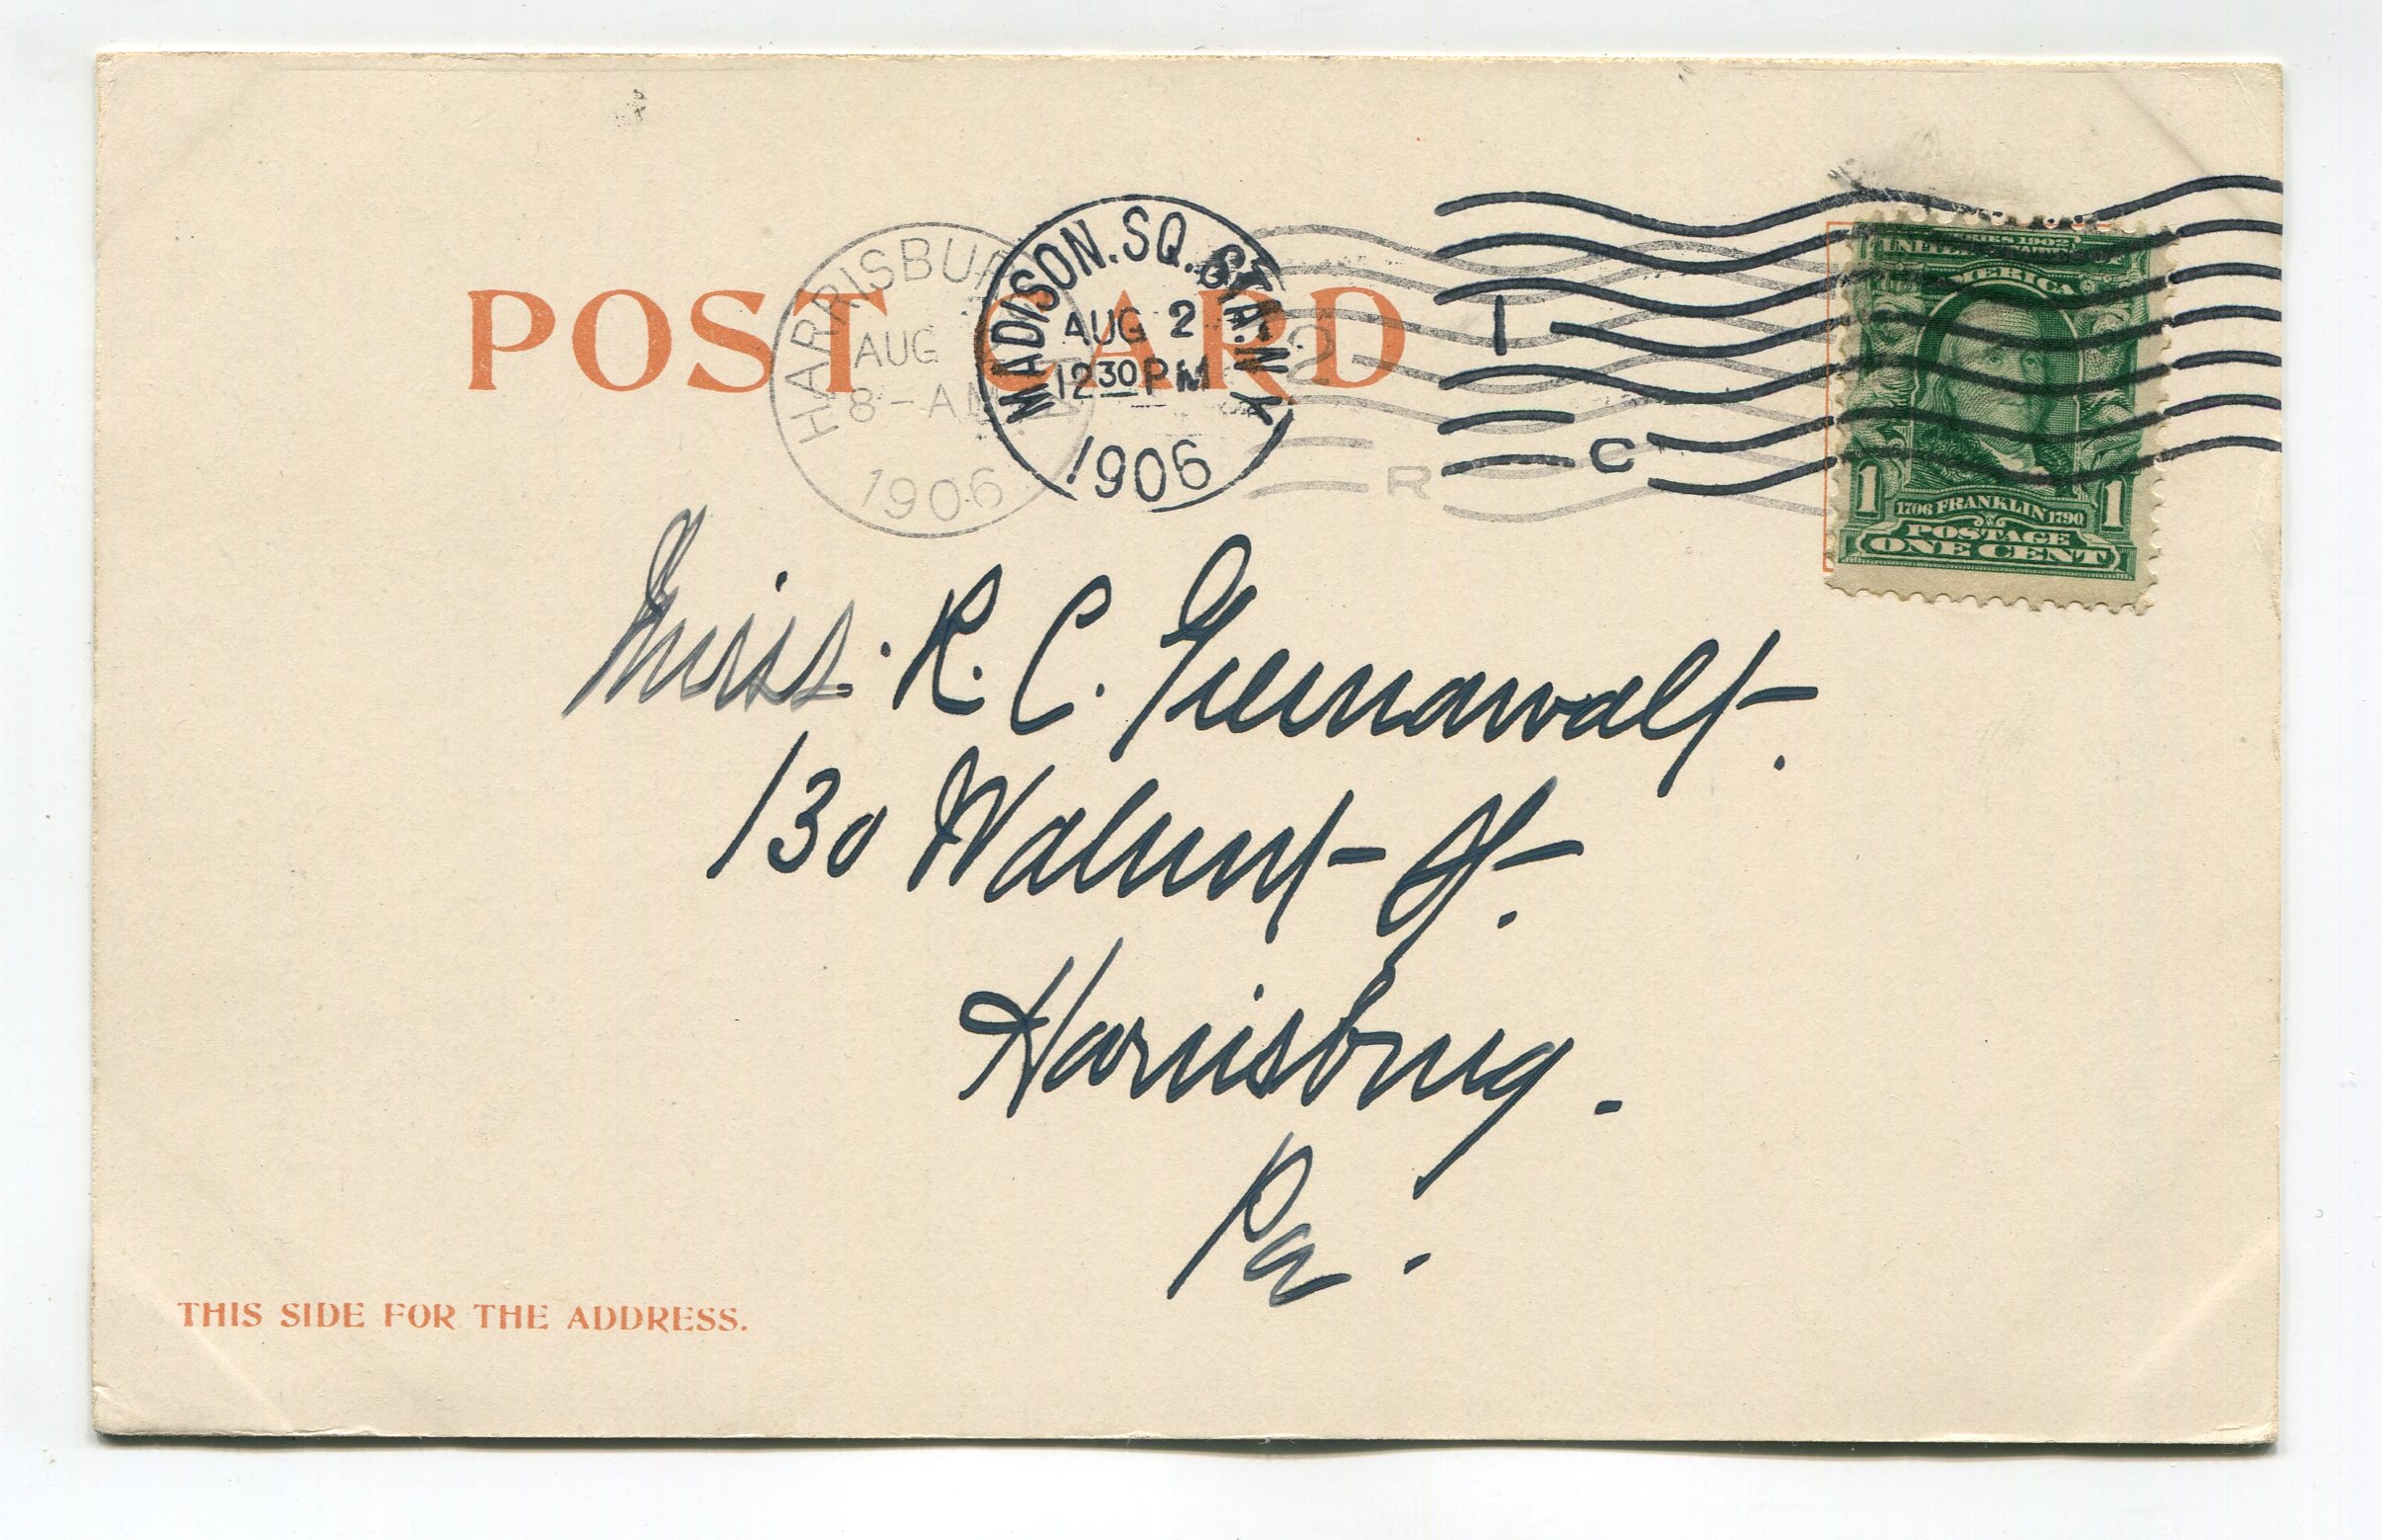 POST CARD
HARRISBUR
AUG
8-AM
1906
MADISON.SQ.STA.N.Y.
AUG 2
12 30 PM
1906
1
C
2
R
SERIES 1902
UNITED STATES OF
AMERICA
1 1706 FRANKLIN 1790 1
POSTAGE
ONE CENT
Miss. R. C. Greenawalt.
130 Walnut St.
Harrisburg.
Pa.
THIS SIDE FOR THE ADDRESS.